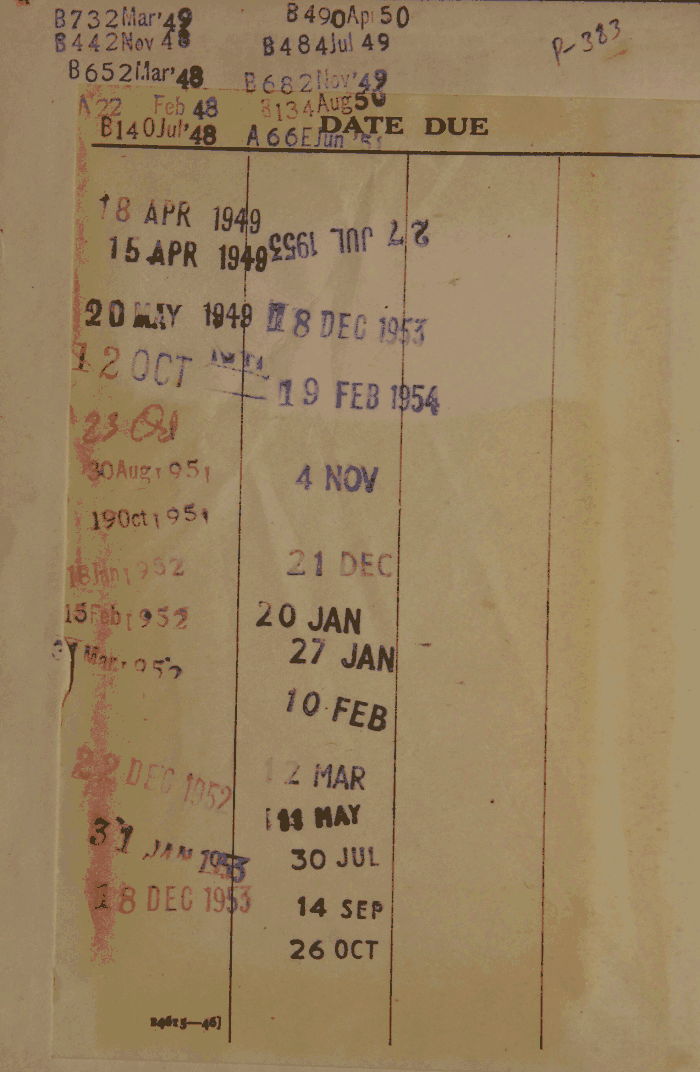 B732Mar'49
B442Nov 48
B652Mar'48
A22 Feb 48
B140Jul'48
B490Apr50
B484Jul 49
B682Nov'49
B134Aug50
A66EJun '51
P-383
DATE DUE
18 APR 1949
15 APR 1949
20 MAY 1949
12 OCT
23 Oct
30Aug1951
19Oct1951
18Jan1952
15Feb1952
31 Mar 1952
22 DEC 1952
31 JAN 1953
18 DEC 1953
24615—46]
27 JUL 1953
18 DEC 1953
19 FEB 1954
4 NOV
21 DEC
20 JAN
27 JAN
10 FEB
12 MAR
11 MAY
30 JUL
14 SEP
26 OCT